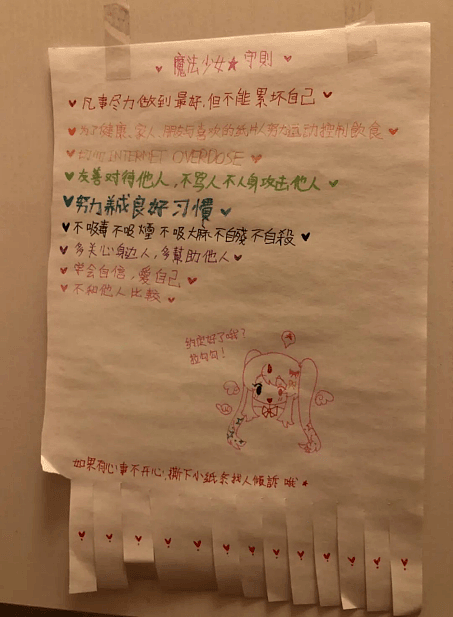 魔法少女★守則
凡事尽力做到最好,但不能累坏自己
为了健康、家人、朋友与喜欢的纸片人努力运动控制飲食
切勿INTERNET OVERDOSE
友善对待他人,不骂人不人身攻击他人
努力养成良好习慣
不吸毒不吸煙不吸大麻不自殘不自殺
多关心身边人,多幫助他人
学会自信,愛自己
不和他人比較
约定好了哦?
拉勾勾!
如果有心事不开心,撕下小紙条找人傾訴哦